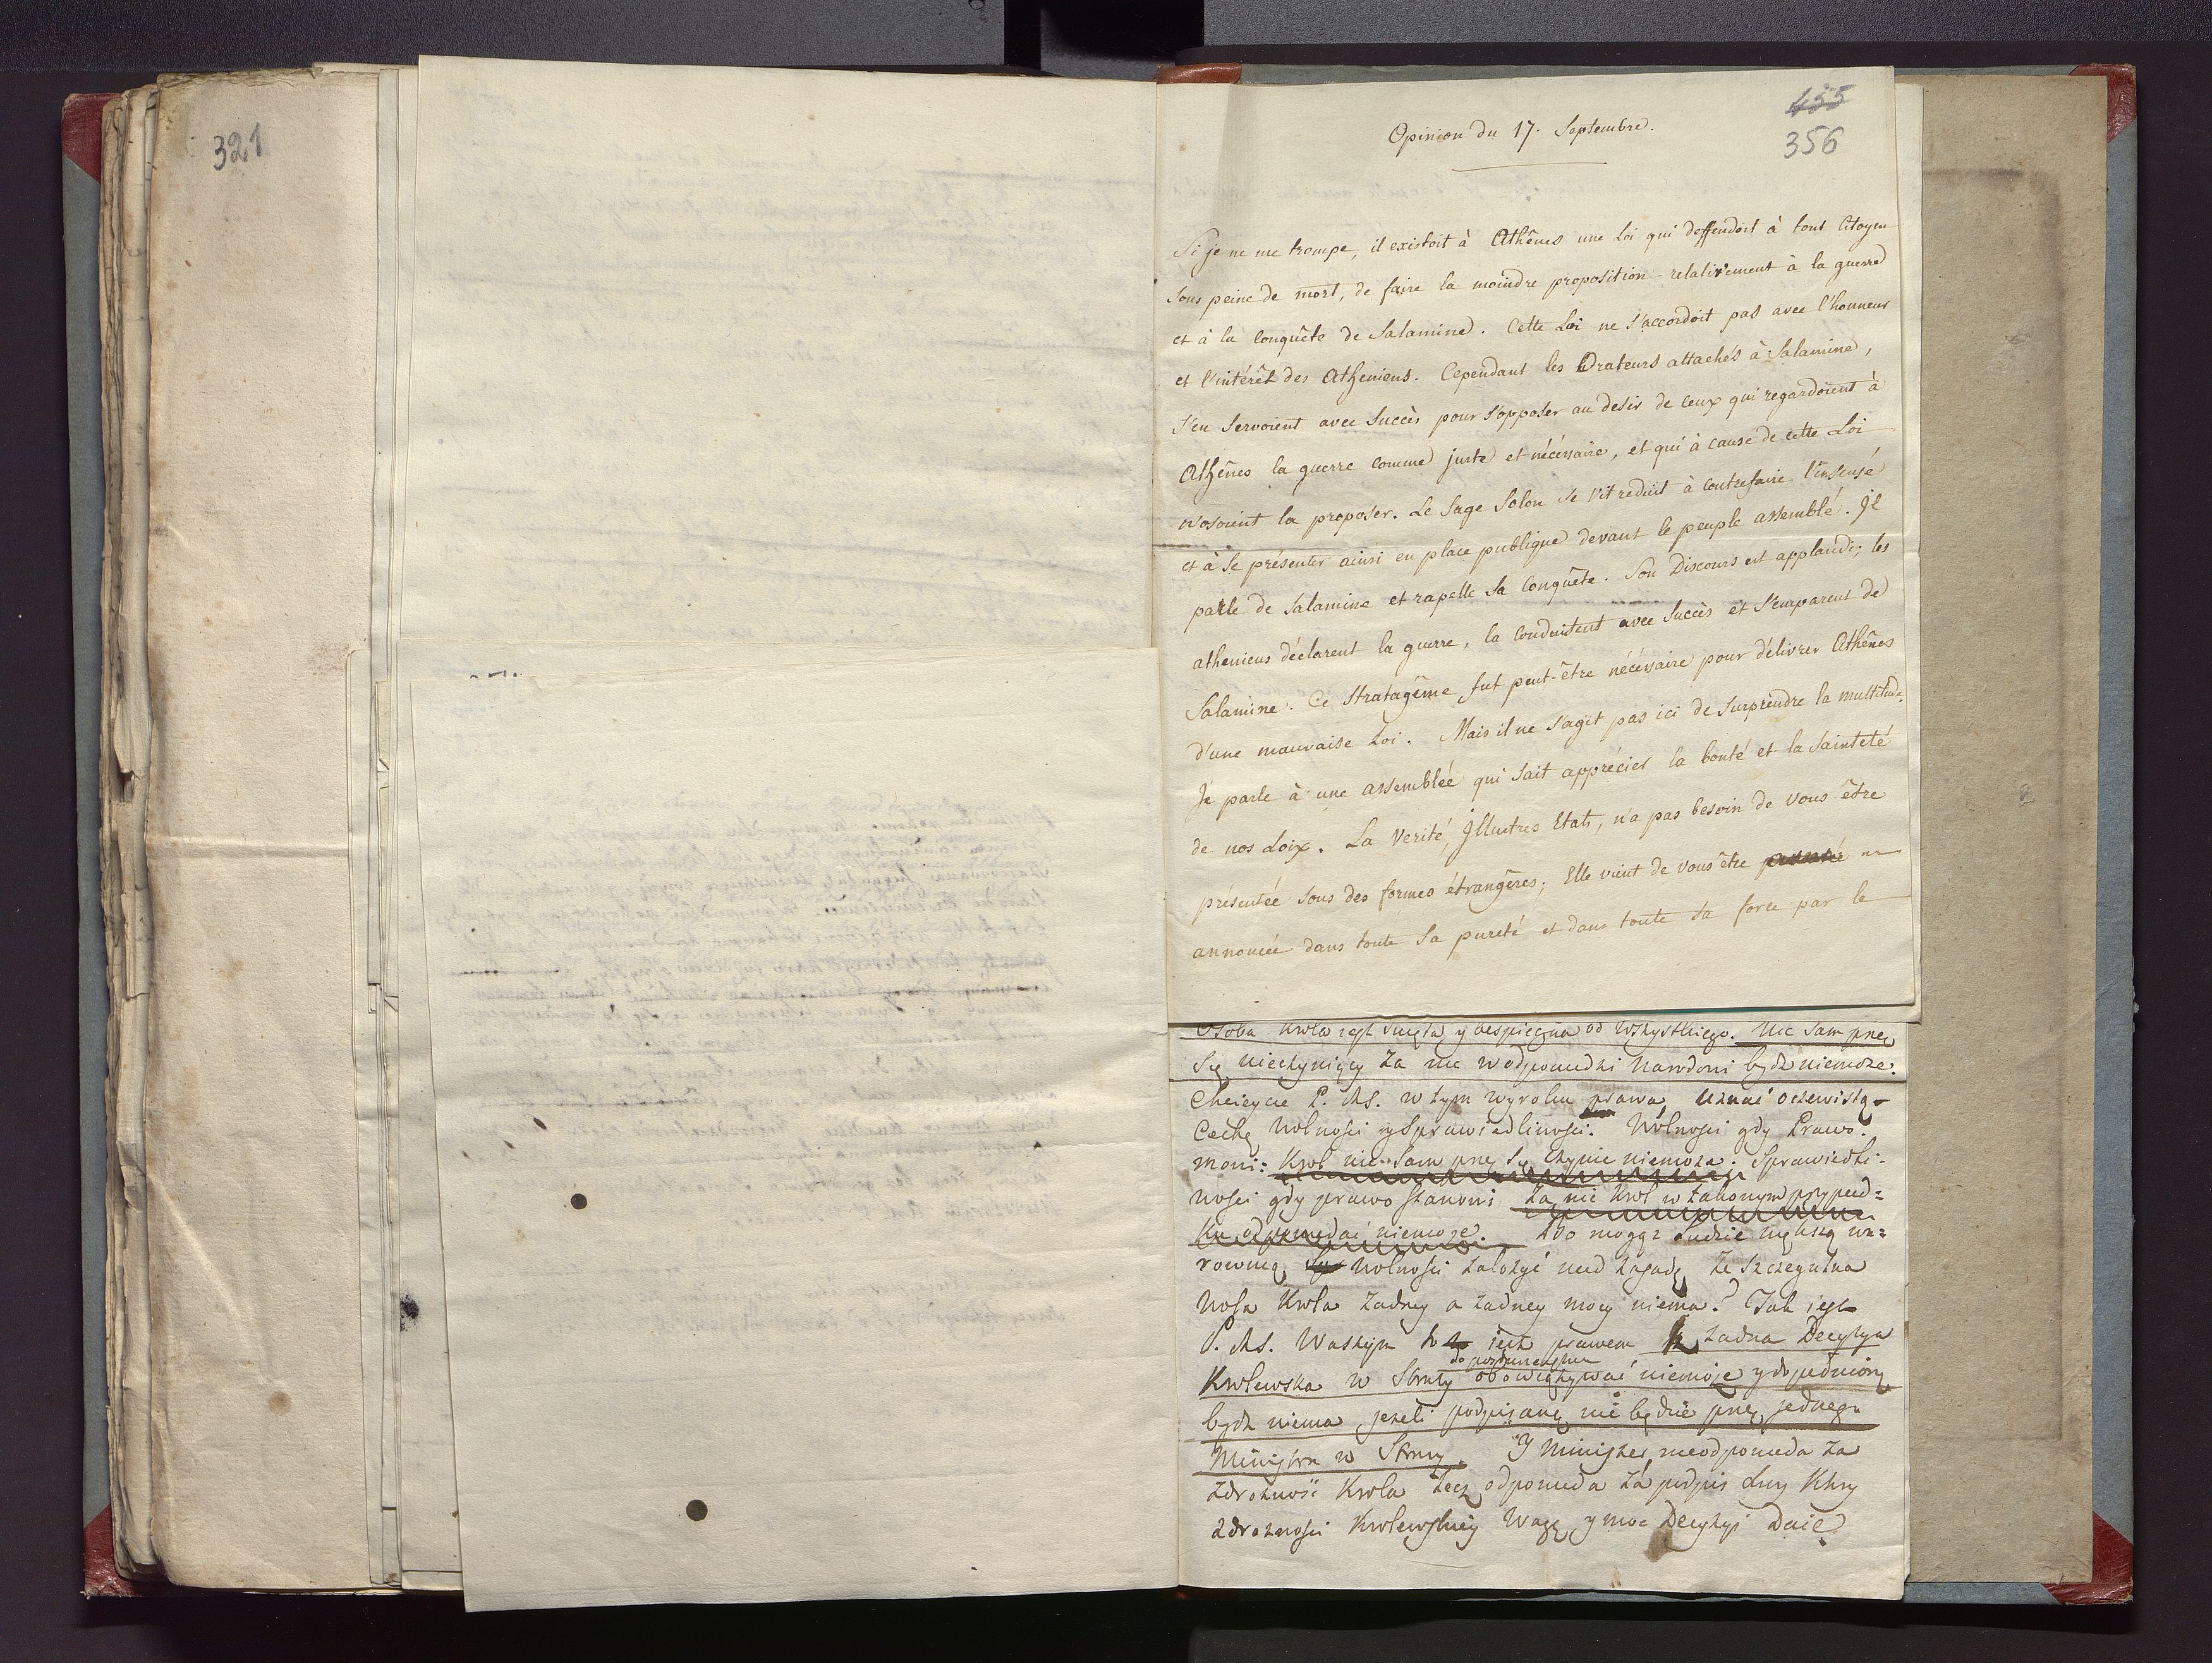 321
455
356
Opinion du 17. Septembre.
Si je ne me trompe, il existoit à Athênes une Loi qui deffendoit à tout Citoyen
sous peine de mort, de faire la moindre proposition relativement à la guerre
et à la Conquête de Salamine. Cette Loi ne s'accordoit pas avec l'honneur
et l'intérêt des Atheniens. Cependant les Orateurs attachés à Salamine,
s'en servoient avec succès pour s'opposer au desir de ceux qui regardoient à
Athênes la guerre comme juste et nécéssaire, et qui à cause de cette Loi
n'osoient la proposer. Le Sage Solon se vit reduit à contrefaire l'insensé
et à se présenter ainsi en place publique devant le peuple assemblé. Il
parle de Salamine et rapelle sa Conquête. Son Discours est applaudi; les
atheniens déclarent la guerre, la conduisent avec succès et s'emparent de
Salamine. Ce stratagême fut peut-être nécéssaire pour délivrer Athênes
d'une mauvaise Loi. Mais il ne s'agit pas ici de surprendre la multitude.
Je parle à une assemblée qui sait apprécier la bonté et la Sainteté
de nos Loix. La Verité, Illustres Etats, n'a pas besoin de vous être
présentée sous des formes étrangères; Elle vient de vous être
annoncée dans toute sa pureté et dans toute sa force par le
Osoba Krola jest swięta y bespieczna od wszystkiego. Nic sam przez
się nieczyniący za nic w odpowiedzi Narodowi bydz niemoże.
Chcieycie P. MS. w tym wyroku prawa uznać oczewistą
Cechę Wolnosci y Sprawiedliwosci. Wolnosci gdy Prawo
mowi: Krol nic sam przez się czynic niemoże. Sprawiedli-
wosci gdy prawo stanowi za nic Krol w żadnym przypad=
ku odpowiadać niemoże. Do mogąz Ludzie większą wa=
rownią Wolnosci założyć nad zasadę że szczegulna
Wola Krola żadney a żadney mocy niema? Tak jest
P. MS. Waszym to jest prawem iż żadna Decyzya
do posłuszeństwa
Krolewska w Straży obowiązywać niemoże y dopełnioną
bydz niema, jeżeli podpisaną nie będzie przez jednego
Ministra w Straży. Y Minister nieodpowiada za
zdrożność Krola lecz odpowiada za podpis swoy Ktory
zdrożnosci Krolewskiey Wagę y moc Decyzyi daie.